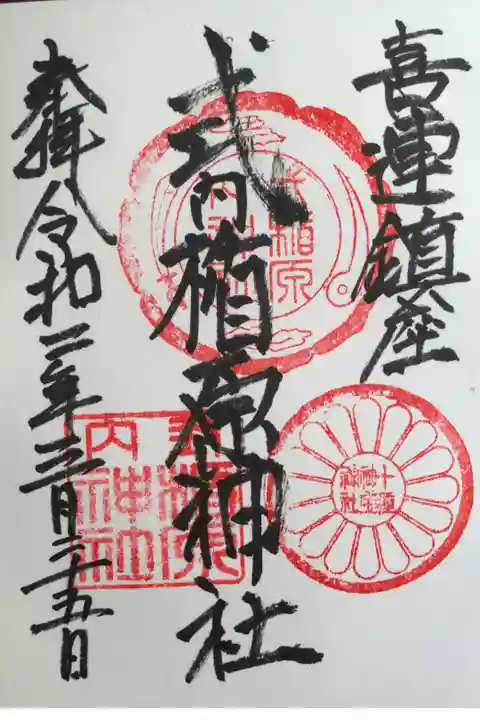 喜連鎮座
式内楯原神社
奉拝 令和二年三月二十五日
式内
楯原
神社